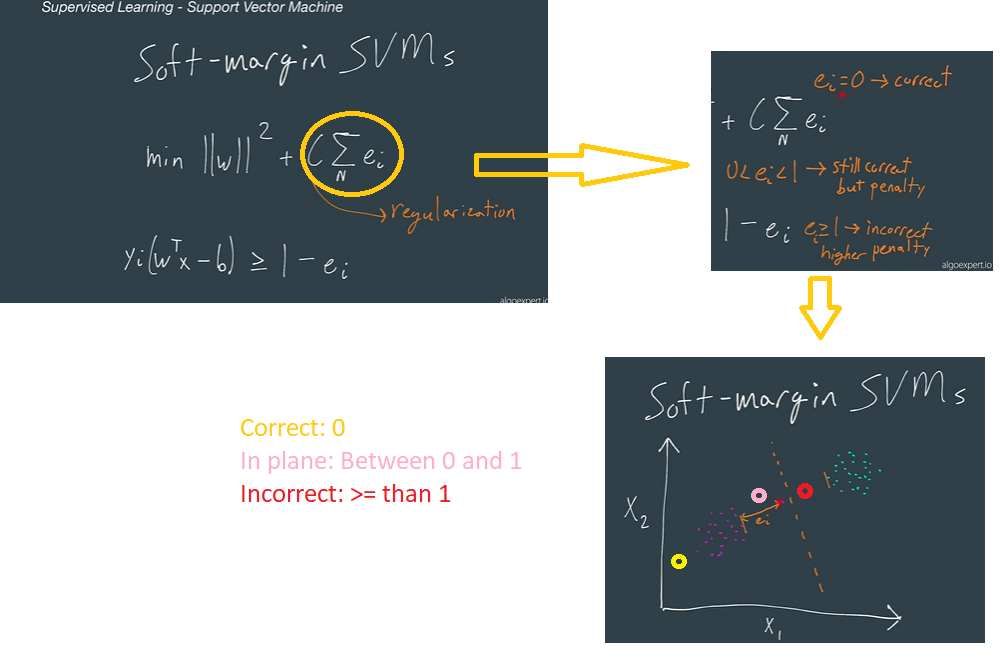 Supervised Learning - Support Vector Machine
Soft-margin SVMs
min ||w||² + C∑ eᵢ
N
→ regularization
yᵢ(wᵀx - b) ≥ 1 - eᵢ
algoexpert.io
eᵢ=0 → correct
+ C∑ eᵢ
N
0<eᵢ<1 → still correct
but penalty
1 - eᵢ eᵢ≥1 → incorrect
higher penalty
algoexpert.io
Correct: 0
In plane: Between 0 and 1
Incorrect: >= than 1
Soft-margin SVMs
X₂
eᵢ
X₁